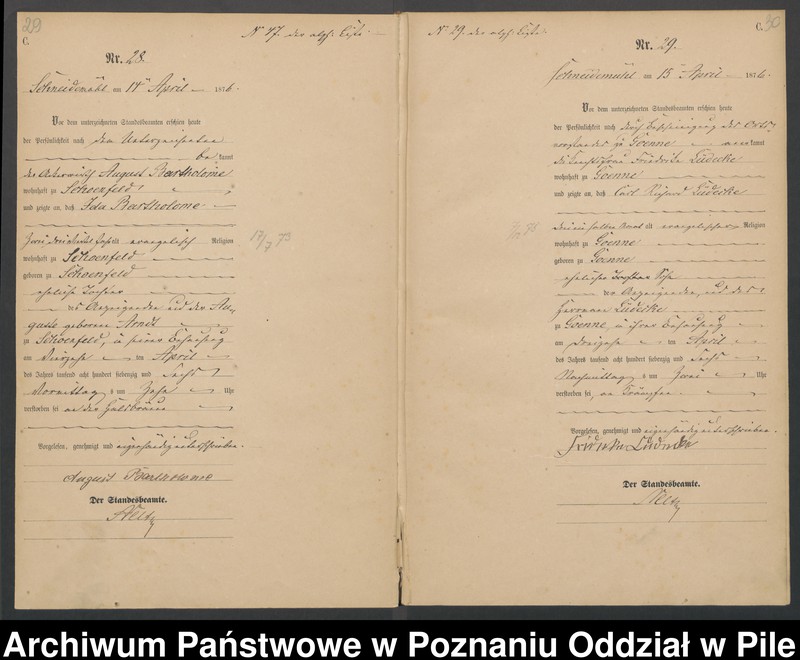 29
C.
Nº 47. der alph. Liste.
Nr. 28.
Schneidemühl am 14 April 1876.
Vor dem unterzeichneten Standesbeamten erschien heute
der Persönlichkeit nach dem Unterzeichneten
be kannt
der Ackerwirth August Bartholome
wohnhaft zu Schoenfeld
und zeigte an, daß Ida Bartholome
alt evangelischer Religion
wohnhaft zu Schoenfeld
geboren zu Schoenfeld
eheliche Tochter
des Anzeigenden und der Au-
guste geborene Arndt
zu Schoenfeld, in seiner Behausung
am Vierzehn ten April
des Jahres tausend acht hundert siebenzig und Sechs
Vormittag s um Zehn Uhr
verstorben sei an der Halsbräune
Vorgelesen, genehmigt und eigenhändig unterschrieben.
August Bartholome
Der Standesbeamte.
17/7 73
C. 30
Nº 29. der alph. Liste.
Nr. 29.
Schneidemühl am 15 April 1876.
Vor dem unterzeichneten Standesbeamten erschien heute
der Persönlichkeit nach durch Bescheinigung des Orts-
vorstandes zu Goenne aner kannt
Friedrike Lüdecke
wohnhaft zu Goenne
und zeigte an, daß Carl Richard Lüdecke
alt evangelischer Religion
wohnhaft zu Goenne
geboren zu Goenne
ehelicher Sohn
der Anzeigenden, und des
Hermann Lüdecke
zu Goenne, in ihrer Behausung
am Dreizehn ten April
des Jahres tausend acht hundert siebenzig und Sechs
Nachmittag s um Zwei Uhr
verstorben sei an Krämpfen.
Vorgelesen, genehmigt und eigenhändig unterschrieben.
Der Standesbeamte.
Archiwum Państwowe w Poznaniu Oddział w Pile